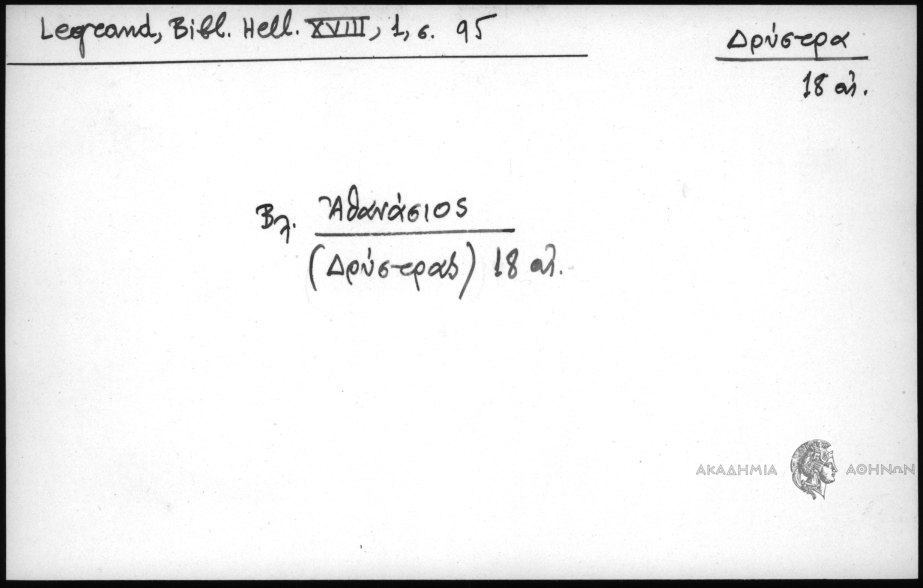 Legrand, Bibl. Hell. XVIII, 1, σ. 95
Δρύστρα
18 αἰ.
Βλ. Ἀθανάσιος
(Δρύστρας) 18 αἰ.
ΑΚΑΔΗΜΙΑ ΑΘΗΝΩΝ